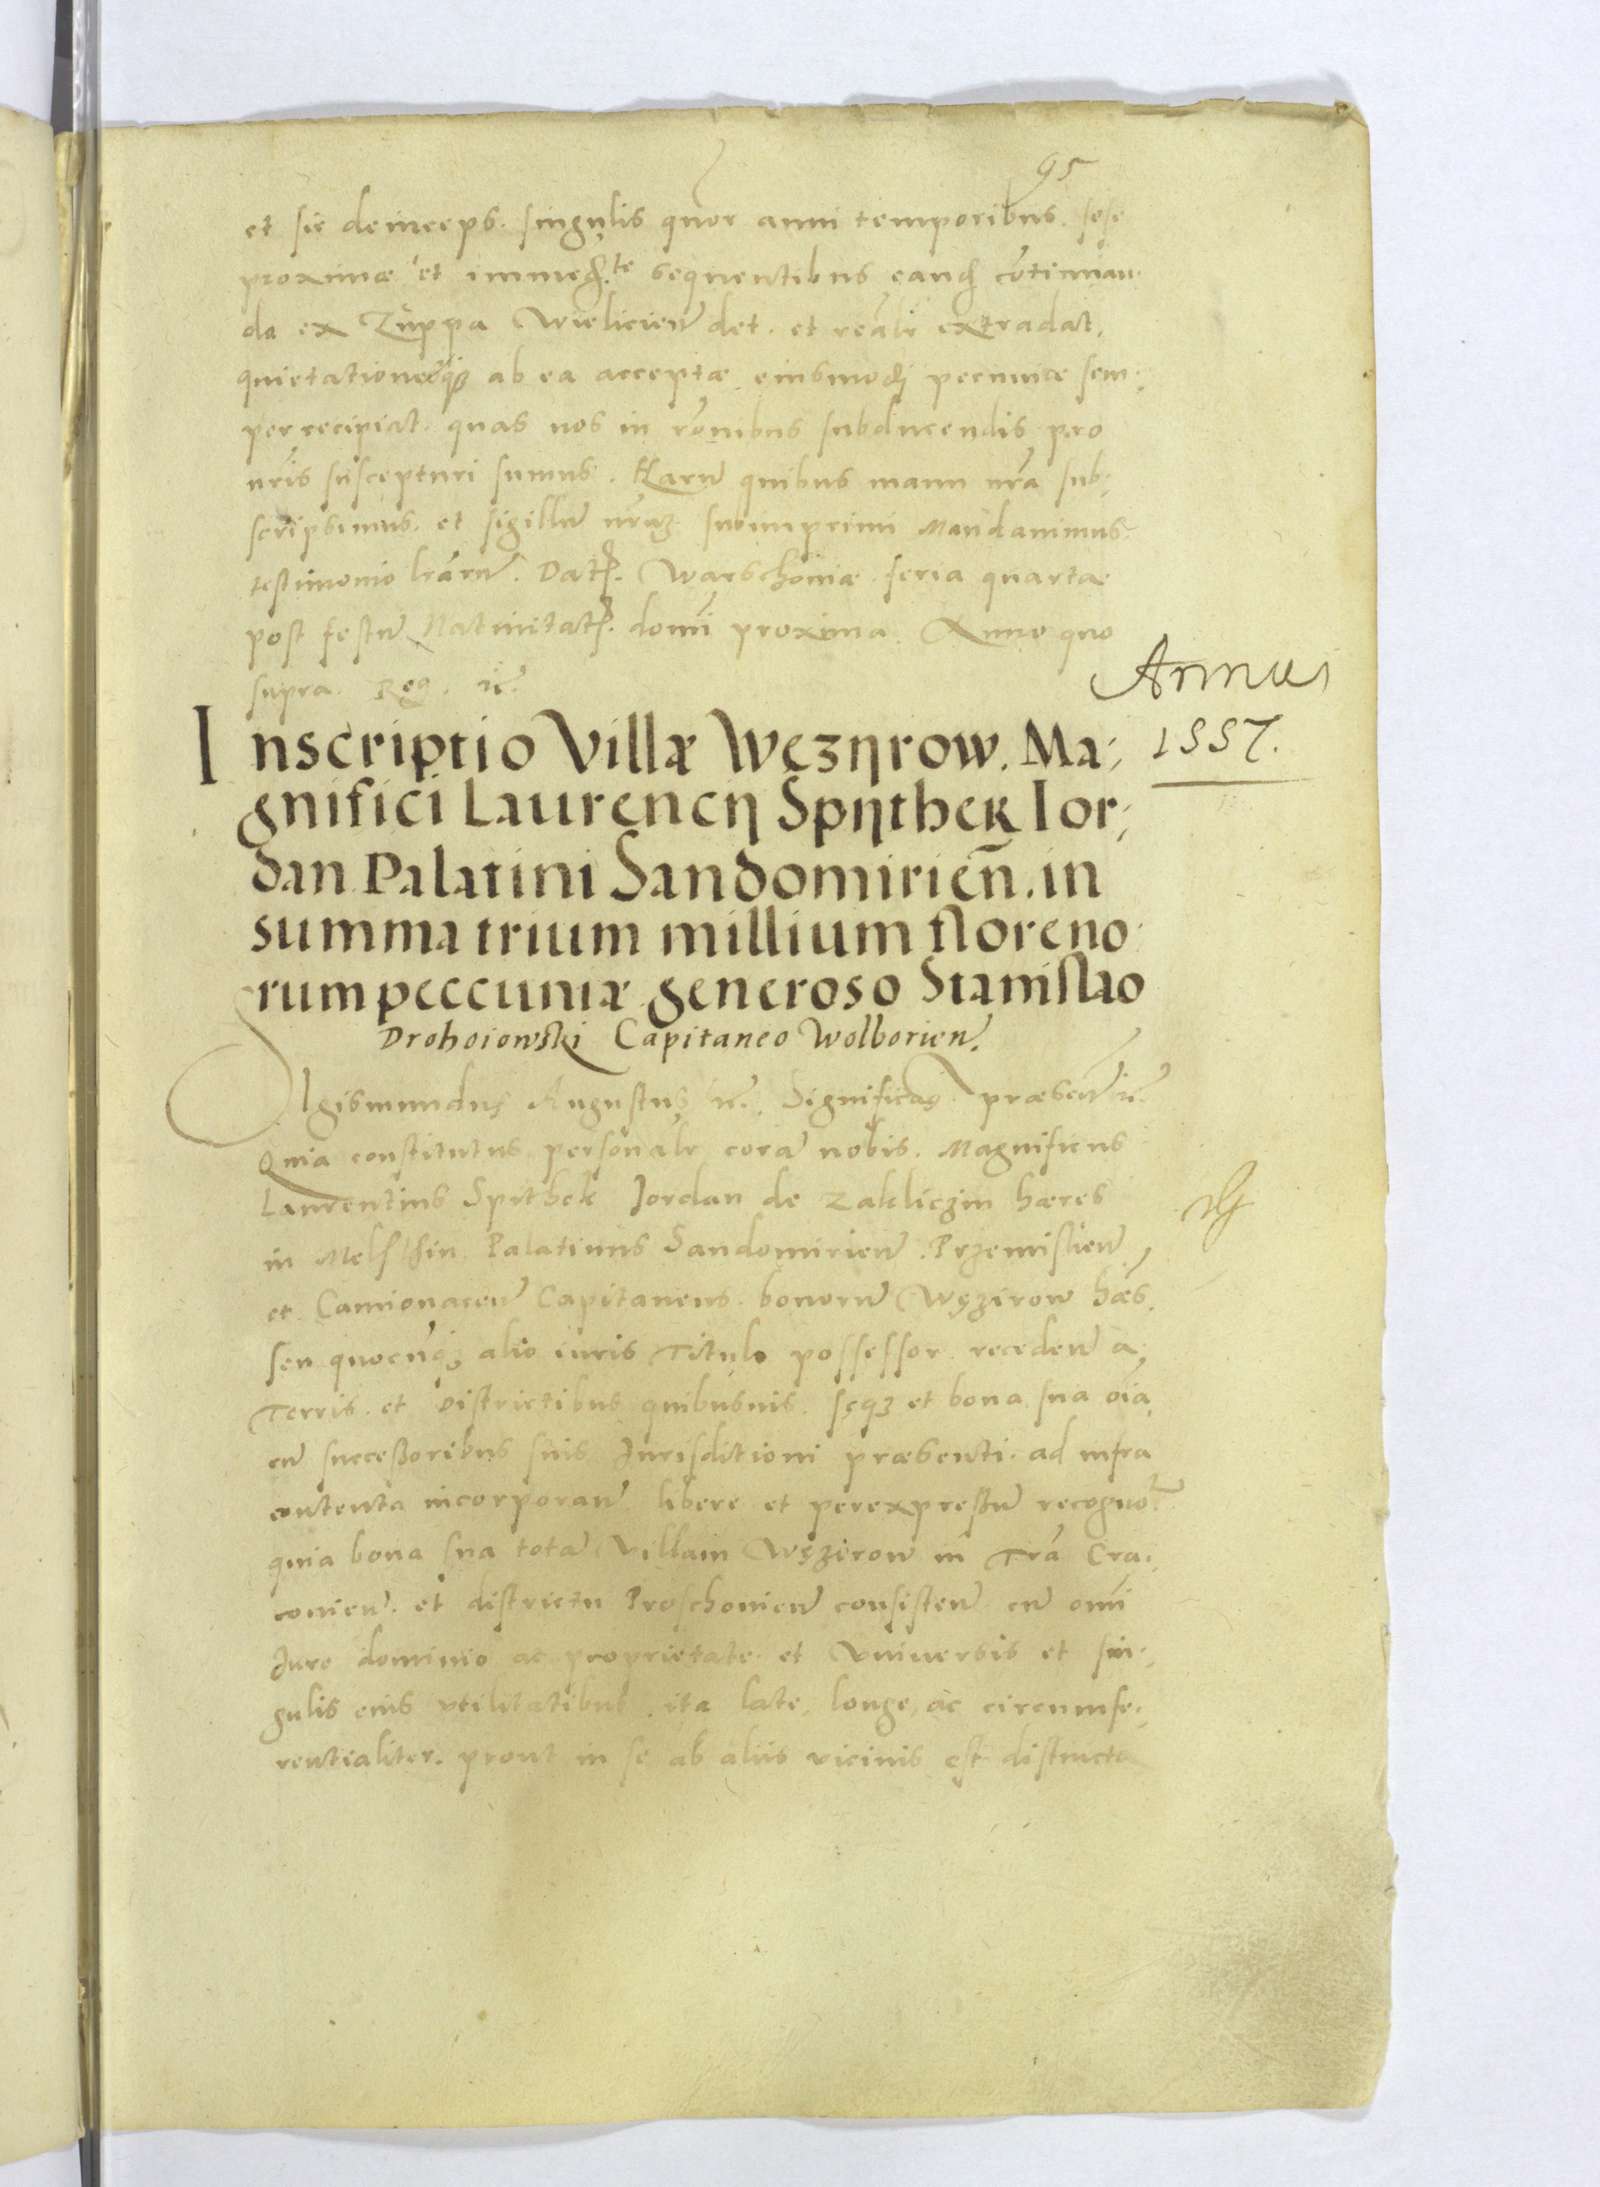 95
et sic deinceps. singulis quor anni temporibus. sese
proximæ et immed.te sequentibus eand cōtinuan-
da ex Zuppa Wielicien̄ det. et realr̄ extradat.
quietationesq3 ab ea acceptæ eiusmodi pecuniæ sem-
per recipiat. quas nos in rōnibus subducendis pro
nr̄is suscepturi sumus. Harū quibus manu nr̄a sub-
scripsimus. et sigillū nr̄m subimprimi mandauimus.
testimonio lr̄arū. Dat. Warschouiæ feria quarta
post festū Natiuitat. domi proxima. Anno quo
supra. Reg. etc̄.
Annus
1557.
Inscriptio Villæ Węzÿrow. Ma-
gnifici Laurencÿ Spÿthek Ior-
dan Palatini Sandomirien̄. in
summa trium millium floreno-
rum peccuniæ generoso Stanislao
Drohoiowski Capitaneo Wolborien̄.
Sigismundus Augustus etc̄. Significamus præsen̄ etc̄.
Quia constitutus personalr̄ corā nobis. Magnificus
Laurentius Spithek Jordan de Zakliczin hæres
in Melsthin Palatinus Sandomirien̄. Przemislien̄
et Camionacen̄ Capitaneus. bonorū Węzirow hæs
seu quocūq3 alio iuris Titulo possessor receden̄ a
Terris. et Districtibus quibusuis. sęq3 et bona sua oīa
cū successoribus suis Jurisditioni præsenti. ad infra
contenta incorporan̄ libere et per expressū recognoīt
quia bona sua totā Villam Węzirow in Trā Cra-
couien̄. et districtu Proschouien̄ consisten̄ cū omī
Jure dominio ac proprietate. et Vniuersis et sin-
gulis eius vtilitatibus. ita late, longe, ac circumfe-
rentialiter. prout in se ab aliis vicinis est distincta